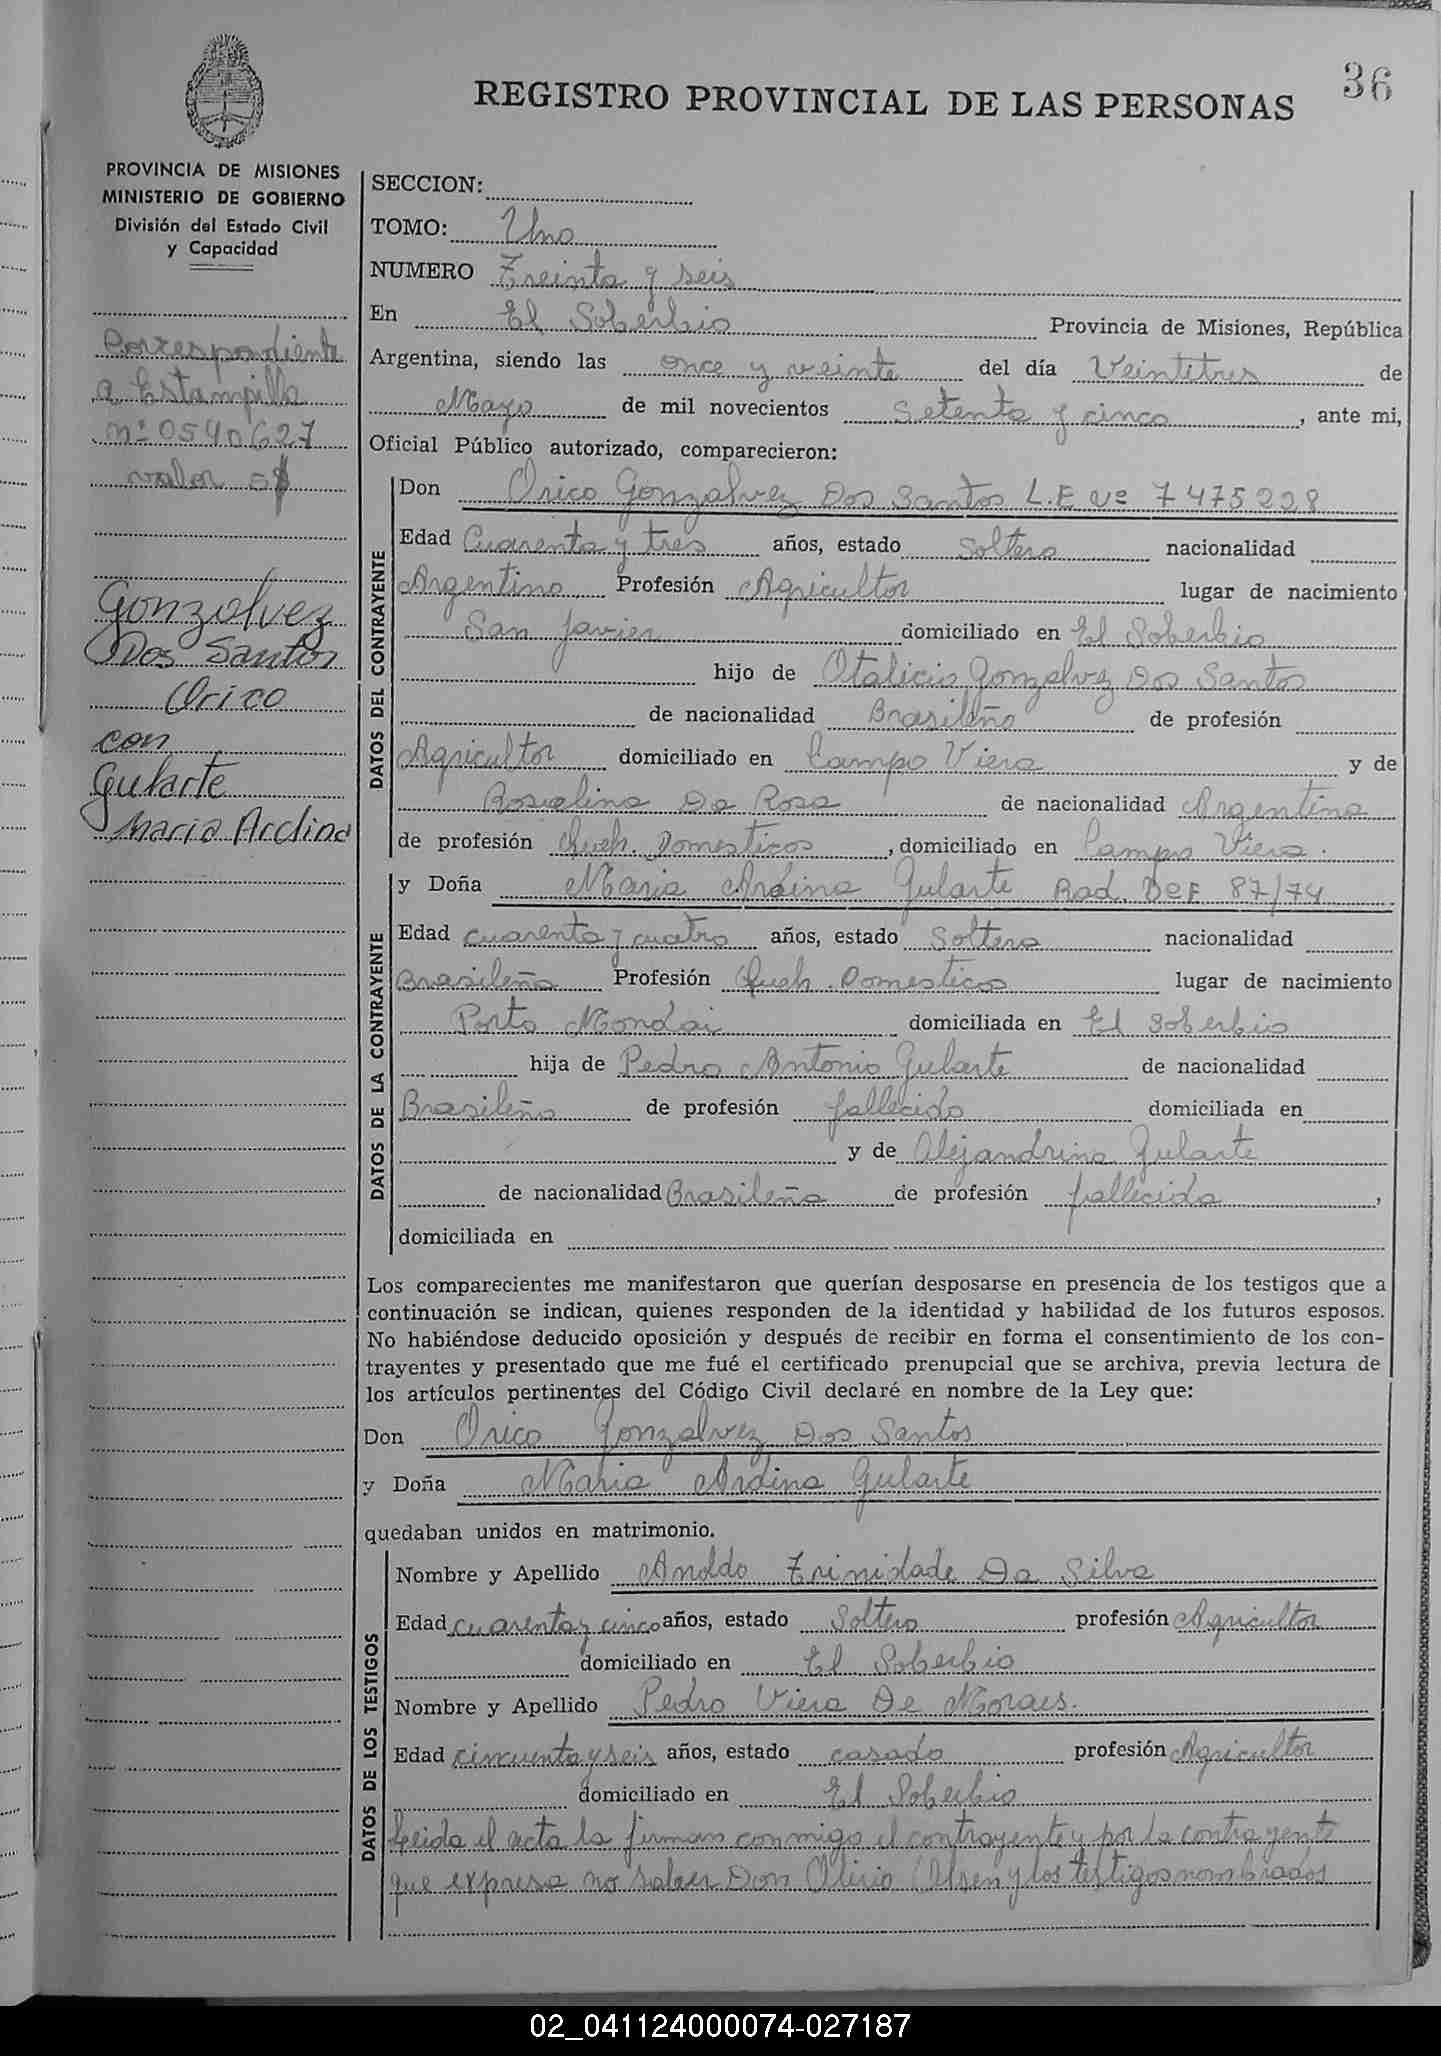 36
REGISTRO PROVINCIAL DE LAS PERSONAS
PROVINCIA DE MISIONES
MINISTERIO DE GOBIERNO
División del Estado Civil
y Capacidad
Correspondiente
a Estampilla
nº 0540627
valor 5$
Gonzalvez
Dos Santos
Orico
con
Gularte
Maria Arclina
SECCION:
TOMO: Uno
NUMERO Treinta y seis
En El Soberbio Provincia de Misiones, República
Argentina, siendo las once y veinte del día Veintitres de
Mayo de mil novecientos Setenta y cinco, ante mi,
Oficial Público autorizado, comparecieron:
DATOS DEL CONTRAYENTE
Don Orico Gonzalvez Dos Santos L.E Nº 7475228
Edad Cuarenta y tres años, estado Soltero nacionalidad
Argentino Profesión Agricultor lugar de nacimiento
San Javier domiciliado en El Soberbio
hijo de Otalicio Gonzalvez Dos Santos
de nacionalidad Brasileño de profesión
Agricultor domiciliado en Campo Viera y de
Rosalina Da Rosa de nacionalidad Argentina
de profesión Queh. Domesticos, domiciliado en Campo Viera.
DATOS DE LA CONTRAYENTE
y Doña Maria Ardina Gularte Rad. Def 87/74
Edad cuarenta y cuatro años, estado Soltera nacionalidad
Brasileña Profesión Queh. Domesticos lugar de nacimiento
Porto Mondai domiciliada en El Soberbio
hija de Pedro Antonio Gularte de nacionalidad
Brasileño de profesión fallecido domiciliada en
y de Alejandrina Gularte
de nacionalidad Brasileña de profesión fallecida,
domiciliada en
Los comparecientes me manifestaron que querían desposarse en presencia de los testigos que a
continuación se indican, quienes responden de la identidad y habilidad de los futuros esposos.
No habiéndose deducido oposición y después de recibir en forma el consentimiento de los con-
trayentes y presentado que me fué el certificado prenupcial que se archiva, previa lectura de
los artículos pertinentes del Código Civil declaré en nombre de la Ley que:
Don Orico Gonzalvez Dos Santos
y Doña Maria Ardina Gularte
quedaban unidos en matrimonio.
DATOS DE LOS TESTIGOS
Nombre y Apellido Anoldo Trinidade Da Silva
Edad cuarenta y cinco años, estado Soltero profesión Agricultor
domiciliado en El Soberbio
Nombre y Apellido Pedro Viera De Moraes.
Edad cincuenta y seis años, estado casado profesión Agricultor
domiciliado en El Soberbio
Leida el acta la firman conmigo el contrayente y por la contrayente
que expresa no saber Don Olirio Olsen y los testigos nombrados
02_041124000074-027187